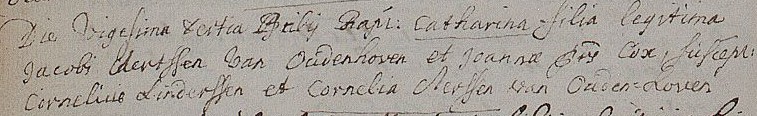 Die Vigesima tertia Xbris Bapt: Catharina filia legitima
Jacobi Aertssen Van Oudenhoven et Joannæ Cox, suscept:
Cornelius Linderssen et Cornelia Aerssen van Ouden-hoven